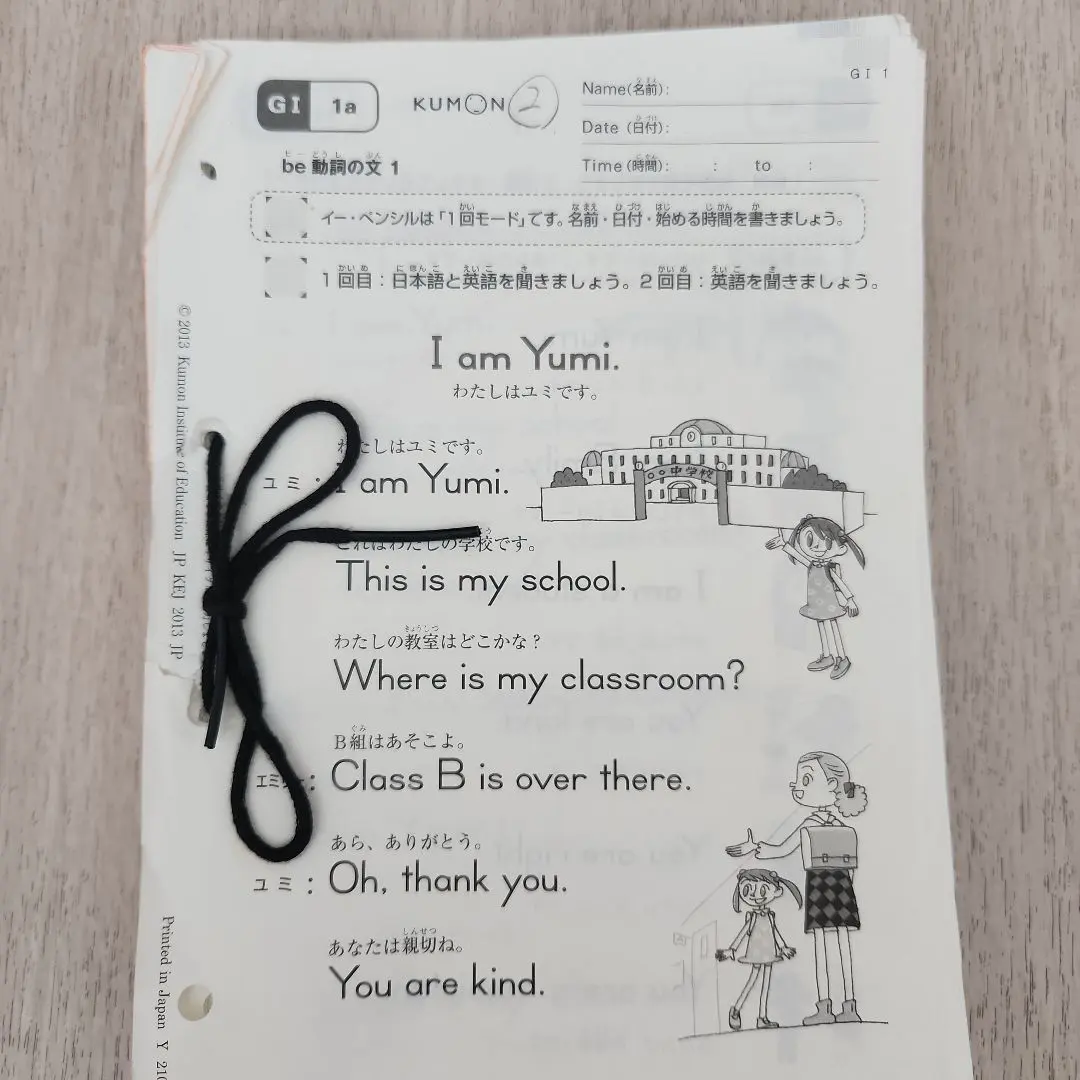 GI 1
GI 1a KUMON 2
Name(名前):
Date (日付):
Time (時間): : to :
be 動詞の文 1
イー・ペンシルは「1回モード」です。名前・日付・始める時間を書きましょう。
1回目：日本語と英語を聞きましょう。2回目：英語を聞きましょう。
I am Yumi.
わたしはユミです。
わたしはユミです。
ユミ： I am Yumi.
○○中学校
これはわたしの学校です。
This is my school.
わたしの教室はどこかな？
Where is my classroom?
B組はあそこよ。
Class B is over there.
あら、ありがとう。
ユミ： Oh, thank you.
あなたは親切ね。
You are kind.
© 2013 Kumon Institute of Education JP KEJ 2013 JP
Printed in Japan Y